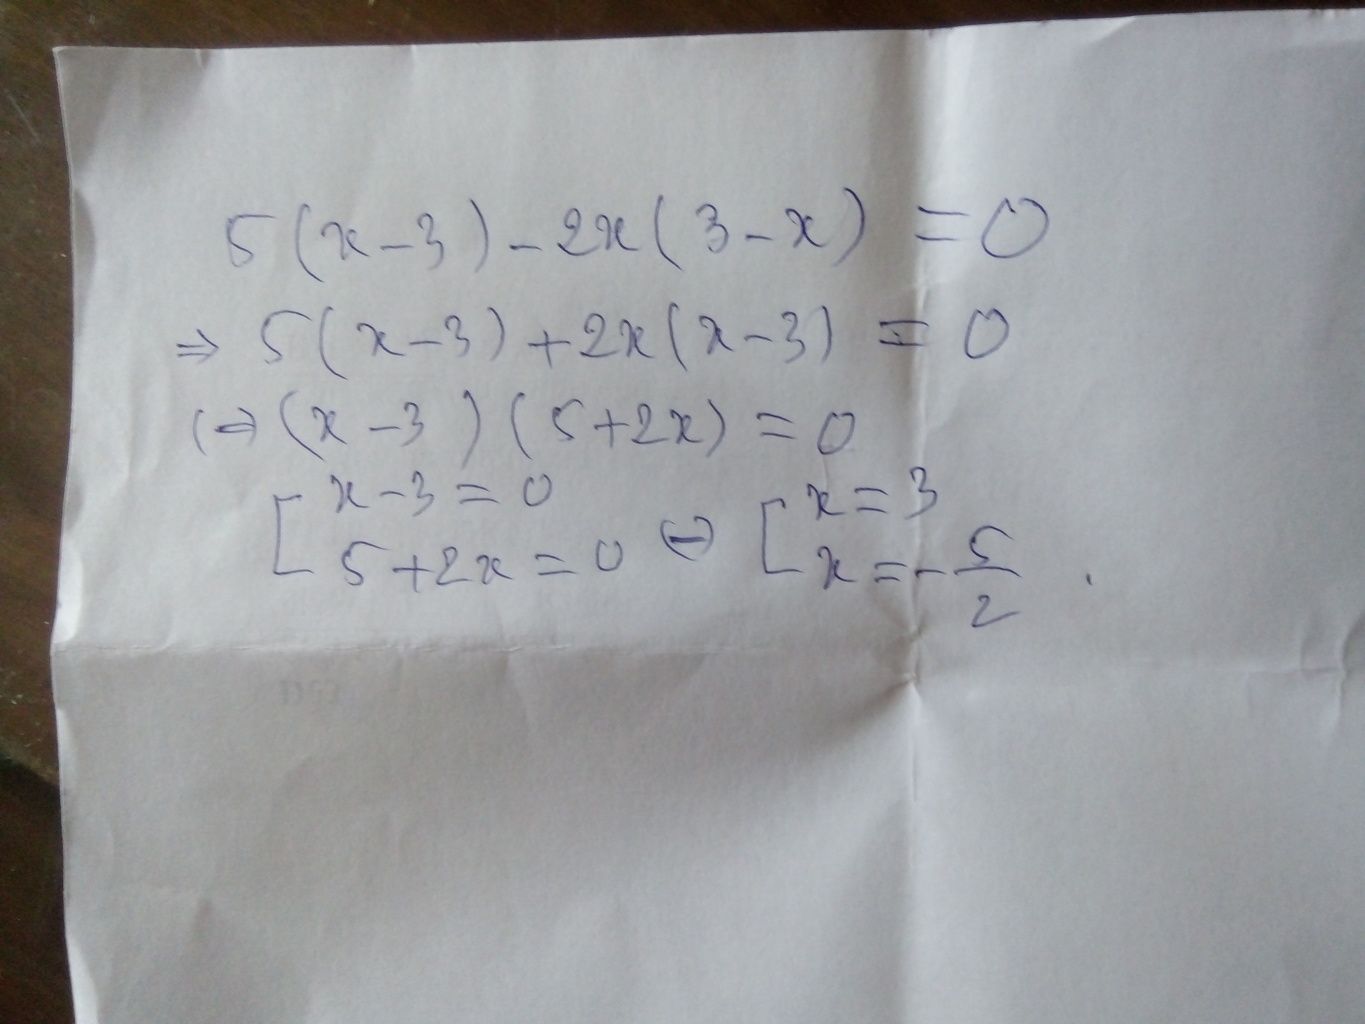 5(x-3)-2x(3-x) = 0
⇒ 5(x-3)+2x(x-3) = 0
⇔ (x-3)(5+2x) = 0
[ x-3=0 5+2x=0 ⇔ [ x=3 x=-5/2 .